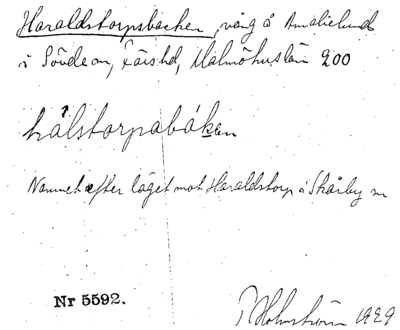 Haraldstorpsbacken, väng å Amalielund
i Sövde sn, Färs hd, Malmöhus län 200
hålstorpabáken
Namnet efter läget mot Haraldstorp i Skårby sn
Nr 5592.
Holmström 1929